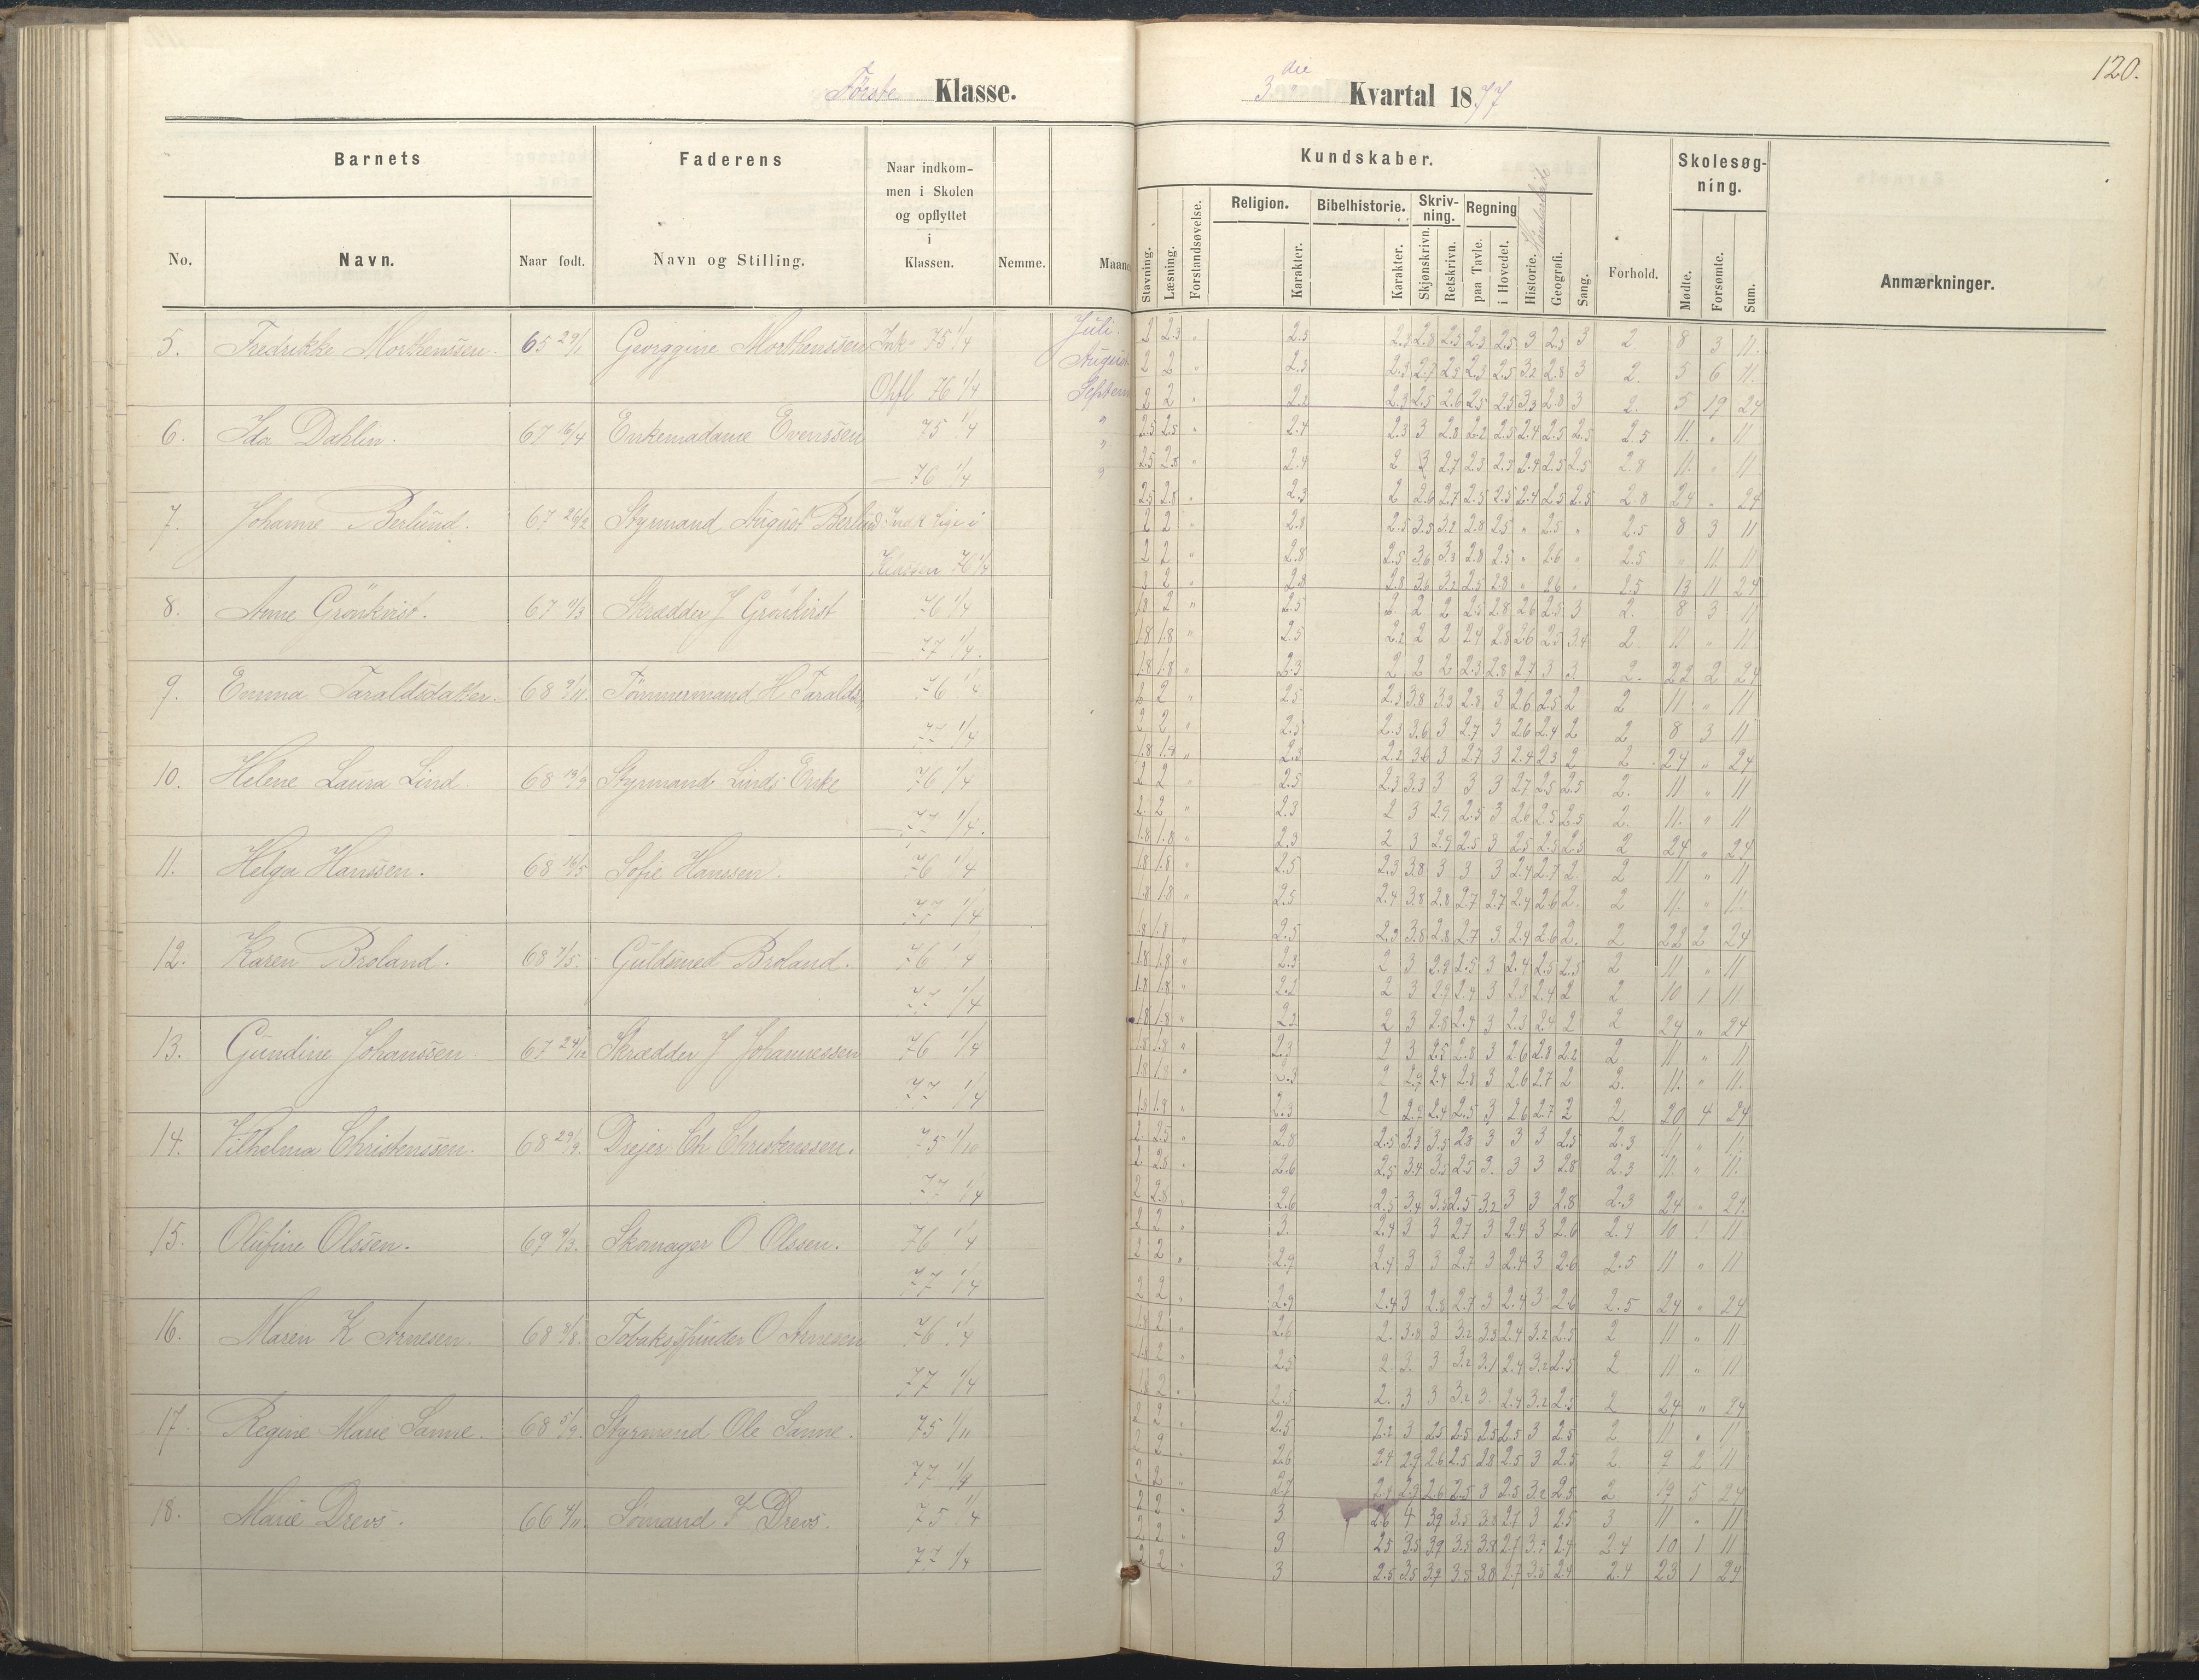 Første Klasse.
3 die Kvartal 1877
120.
Barnets
Faderens
Naar indkommen i Skolen og opflyttet i Klassen.
Nemme.
Maaned
Kundskaber.
Forhold.
Skolesøgning.
Anmærkninger.
No.
Navn.
Naar født.
Navn og Stilling.
Stavning.
Læsning.
Forstandsøvelse.
Religion.
Karakter.
Bibelhistorie.
Karakter.
Skrivning.
Skjønskrivn.
Retskrivn.
Regning
paa Tavle.
i Hovedet.
Historie.
Haandarbeide
Geografi.
Sang.
Mødte.
Forsømte.
Sum.
5. Fredrikke Morthenssen. 65 29/1 Georggine Morthenssen Ink. 75 1/4 Juli. 2 2.3 " 2.3 2.3 2.8 2.5 2.3 2.5 3 2.5 3 2 8 3 11.
August 2 2 " 2.3 2.3 2.7 2.5 2.3 2.5 3.2 2.8 3 2. 5 6 11.
Opfl 76 1/4 Septem 2 2 " 2.2 2.3 2.5 2.6 2.5 2.5 3.3 2.8 3 2. 5 19 24
6. Ida Dahlin. 67 16/4 Enkemadame Evenssen 75 1/4 " 2.5 2.5 " 2.4 2.3 3 2.8 2.2 2.5 2.4 2.5 2.5 2.5 11. " 11
" 2.5 2.8 " 2.4 2 3 2.7 2.3 2.5 2.4 2.5 2.5 2.8 11. " 11
76 1/4 " 2.5 2.8 " 2.3 2 2.6 2.7 2.5 2.5 2.4 2.5 2.5 2.8 24 " 24
7. Johanne Berlund. 67 26/2 Styrmand August Berlund 2 2 " 2.8 2.5 3.5 3.2 2.8 2.5 " 2.5 " 2.5 8 3 11
2 2 " 2.8 2.5 3.6 3.3 2.8 2.5 " 2.6 " 2.5 " 11. 11
Klassen 76 1/4 2 2 " 2.8 2.8 3.6 3.2 2.5 2.8 " 2.6 " 2.5 13 11 24
8. Anne Grönkvist. 67 11/3 Skrædder J Grönkvist 76 1/4 1.8 2 " 2.5 2. 2 2 2.5 2.8 2.6 2.5 3 2. 8 3 11
1.8 1.8 " 2.5 2.2 2 2 2.4 2.8 2.6 2.5 3.4 2 11 " 11
77 1/4. 1.8 1.8 " 2.3 2 2 2 2.3 2.8 2.7 3 3 2. 22 2 24
9. Emma Taraldsdatter. 68 9/11. Tømmermand H. Taralds 76 1/4 2 2 " 2.5 2.3 3.8 3.3 2.8 3 2.6 2.5 2 2 11 " 11
2 2 " 2.5 2.3 3.6 3 2.7 3 2.6 2.4 2 2 8 3 11
77 1/4 1.8 1.8 " 2.3 2.2 3.6 3 2.7 3 2.4 2.3 2 2 24 " 24
10. Helene Laura Lind. 68 13/9 Styrmand Linds Enke 76 1/4 2 2 " 2.5 2.3 3.3 3 3 3 2.7 2.5 2.5 2. 11 " 11
2. 2 " 2.3 2 3 2.9 2.5 3 2.6 2.5 2.5 2. 11. " 11
77 1/4. 1.8 1.8 " 2.3 2 3 2.9 2.5 3 2.5 2.5 2.5 2 24 " 24
11. Helga Hanssen. 68 16/5 Sofie Hanssen. 76 1/4 1.8 1.8 " 2.5 2.3 3.8 3 3 3 2.4 2.7 2 2 11 " 11
1.8 1.8 " 2.5 2.4 3.8 2.8 2.7 2.7 2.4 2.6 2. 2 11. " 11.
77 1/4 1.8 1.8 " 2.5 2.3 3.8 2.8 2.7 3. 2.4 2.6 2. 2 22 2 24
12. Karen Broland. 68 7/5. Guldsmed Broland. 76 1/4 1.8 1.8 " 2.3 2 3 2.9 2.5 3 2.4 2.5 2.5 2 11 " 11
1.8 1.8 " 2.2 2 3 2.9 2.4 3 2.3 2.4 2 2 10 1 11
77 1/4 1.8 1.8 " 2.2 2 3 2.8 2.4 3 2.3 2.4 2 2 24 " 24
13. Gundine Johanssen 67 24/12 Skrædder J Johannessen 76 1/4 1.8 1.8 " 2.3 2 3 2.5 2.8 3 2.6 2.8 2.2 2 11 " 11
1.8 1.8 " 2.3 2 2.9 2.4 2.8 3 2.6 2.7 2 2. 11. " 11.
77 1/4 1.8 1.8 " 2.3 2 2.7 2.4 2.5 3 2.6 2.7 2 2 20 4 24
14. Vilhelma Christenssen. 68 29/9. Drejer Ch. Christenssen. 75 1/10 2. 2.5 " 2.8 2.5 3.3 3.5 2.8 3 3 3 2.5 2.3 11 " 11.
2 2.8 " 2.6 2.5 3.4 3.5 2.5 3. 3 3 2.8 2.3 11. " 11.
77 1/4 2 2.8 " 2.6 2.5 3.4 3.5 2.5 3.2 3 3 2.8 2.3 24 " 24.
15. Olufine Olssen. 69 9/3. Skomager O Olssen. 76 1/4 2 2 " 3. 2.4 3 3 2.7 3 2.4 3 2.6 2.4 10 1 11
2 2 " 2.9 2.4 3 3 2.7 3 2.4 3 2.6 2.5 11 " 11
77 1/4 2 2 " 2.9 2.4 3 2.8 2.7 3 2.4 3 2.6 2.5 24 " 24
16. Maren K Arnesen. 68 8/8. Tobakspinder O Arnesen 76 1/4 1.8 2 " 2.6 2. 3.8 3 3.2 3.3 2.4 3.2 2.5 2 11 " 11
1.8 2 " 2.5 2. 3. 3 3.2 3.1 2.4 3.2 2.5 2 11 " 11
77 1/4 1.8 2 " 2.5 2. 3 3 3.2 3. 2.4 3.2 2.5 2 24 " 24
17. Regine Marie Sanne. 68 5/9. Styrmand Ole Sanne. 75 1/11 2 2 " 2.5 2.2 3 2.5 2.5 2.5 2.5 3 2.5 2 11 " 11
2 2 " 2.6 2.4 2.9 2.6 2.5 2.8 2.5 3 2.5 2. 9 2 11
77 1/4 2 2 " 2.7 2.4 2.9 2.6 2.5 3 2.5 3.2 2.5 2 19 5 24
18. Marie Drevs. 66 4/11. Sømand F Drevs. 75 1/4 2 2 " 3 2.6 4 3.9 3.5 3.8 2.7 3 2.5 3 11 " 11
2 2 " 3 2.5 3.5 3.9 3.5 3.8 2.7 3.2 2.4 2.4 10 1 11
77 1/4 2 2 " 3 2.5 3.5 3.9 3.5 3.8 2.7 3.5 2.4 2.4 23 1 24